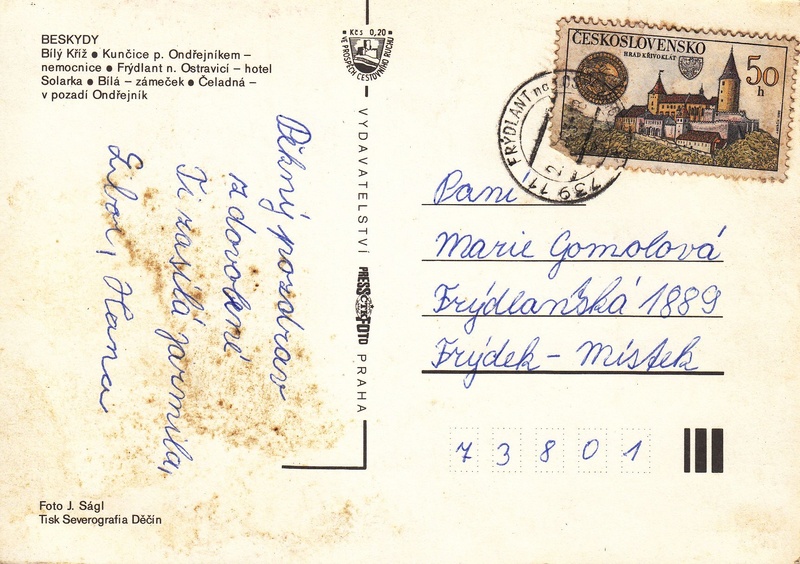 BESKYDY
Bílý Kříž ● Kunčice p. Ondřejníkem –
nemocnice ● Frýdlant n. Ostravicí – hotel
Solarka ● Bílá – zámeček ● Čeladná –
v pozadí Ondřejník
Pěkný pozdrav
z dovolené
Ti zasílá Jarmila,
Libor, Hana
Foto J. Ságl
Tisk Severografia Děčín
Kčs 0,20
VE PROSPĚCH CESTOVNÍHO RUCHU
VYDAVATELSTVÍ PRESSFOTO PRAHA
ČTK
ČESKOSLOVENSKO
HRAD KŘIVOKLÁT
50 h
FRÝDLANT
739 11
Paní
Marie Gomolová
Frýdlantská 1889
Frýdek - Místek
73801